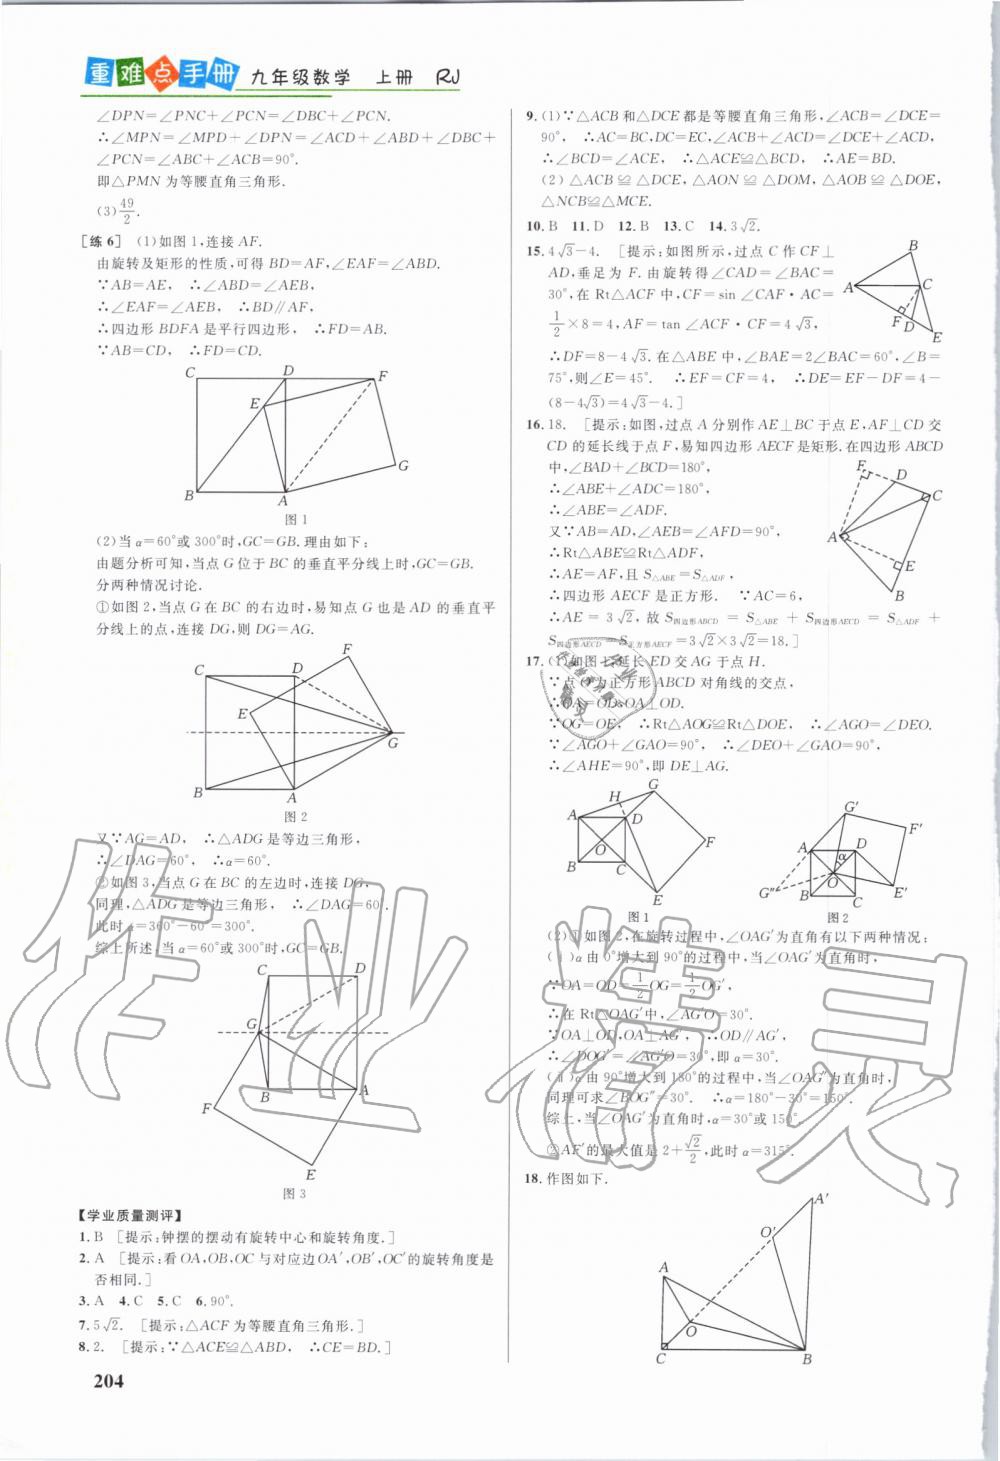 重难点手册 九年级数学 上册 RJ
∠DPN=∠PNC+∠PCN=∠DBC+∠PCN.
∴∠MPN=∠MPD+∠DPN=∠ACD+∠ABD+∠DBC+
∠PCN=∠ABC+∠ACB=90°.
即△PMN为等腰直角三角形.
(3)49/2.
[练6] (1)如图1,连接AF.
由旋转及矩形的性质,可得BD=AF,∠EAF=∠ABD.
∵AB=AE, ∴∠ABD=∠AEB,
∴∠EAF=∠AEB, ∴BD∥AF,
∴四边形BDFA是平行四边形, ∴FD=AB.
∵AB=CD, ∴FD=CD.
C D F
E
G
B A
图1
(2)当α=60°或300°时,GC=GB.理由如下:
由题分析可知,当点G位于BC的垂直平分线上时,GC=GB.
分两种情况讨论.
①如图2,当点G在BC的右边时,易知点G也是AD的垂直平
分线上的点,连接DG,则DG=AG.
F
C D
E
G
B A
图2
又∵AG=AD, ∴△ADG是等边三角形,
∴∠DAG=60°, ∴α=60°.
②如图3,当点G在BC的左边时,连接DG,
同理,△ADG是等边三角形, ∴∠DAG=60°.
此时α=360°-60°=300°.
综上所述,当α=60°或300°时,GC=GB.
C D
G
B A
F
E
图3
【学业质量测评】
1.B [提示:钟摆的摆动有旋转中心和旋转角度.]
2.A [提示:看OA,OB,OC与对应边OA′,OB′,OC′的旋转角度是
否相同.]
3.A 4.C 5.C 6.90°.
7.5√2. [提示:△ACF为等腰直角三角形.]
8.2. [提示:∵△ACE≌△ABD, ∴CE=BD.]
204
9.(1)∵△ACB和△DCE都是等腰直角三角形,∠ACB=∠DCE=
90°, ∴AC=BC,DC=EC,∠ACB+∠ACD=∠DCE+∠ACD,
∴∠BCD=∠ACE, ∴△ACE≌△BCD, ∴AE=BD.
(2)△ACB≌△DCE,△AON≌△DOM,△AOB≌△DOE,
△NCB≌△MCE.
10.B 11.D 12.B 13.C 14.3√2.
15.4√3-4. [提示:如图所示,过点C作CF⊥
AD,垂足为F.由旋转得∠CAD=∠BAC=
30°,在Rt△ACF中,CF=sin∠CAF·AC=
1/2×8=4,AF=tan∠ACF·CF=4√3,
∴DF=8-4√3.在△ABE中,∠BAE=2∠BAC=60°,∠B=
75°,则∠E=45°. ∴EF=CF=4, ∴DE=EF-DF=4-
(8-4√3)=4√3-4.]
B
A C
F D
E
16.18. [提示:如图,过点A分别作AE⊥BC于点E,AF⊥CD交
CD的延长线于点F,易知四边形AECF是矩形.在四边形ABCD
中,∠BAD+∠BCD=180°,
∴∠ABE+∠ADC=180°,
∴∠ABE=∠ADF.
又∵AB=AD,∠AEB=∠AFD=90°,
∴Rt△ABE≌Rt△ADF,
∴AE=AF,且S△ABE=S△ADF,
∴四边形AECF是正方形. ∵AC=6,
∴AE=3√2,故S四边形ABCD=S△ABE+S四边形AECD=S△ADF+
S四边形AECD=S正方形AECF=3√2×3√2=18.]
F D
C
A
E
B
17.(1)如图1,延长ED交AG于点H.
∵点O为正方形ABCD对角线的交点,
∴OA=OD,OA⊥OD.
∵OG=OE, ∴Rt△AOG≌Rt△DOE, ∴∠AGO=∠DEO.
∵∠AGO+∠GAO=90°, ∴∠DEO+∠GAO=90°,
∴∠AHE=90°,即DE⊥AG.
G
H
A D
O F
B C
E
图1
G′
F′
A D
α
O
G″ B C E′
图2
(2)①如图2,在旋转过程中,∠OAG′为直角有以下两种情况:
(ⅰ)α由0°增大到90°的过程中,当∠OAG′为直角时,
∵OA=OD=1/2OG=1/2OG′,
∴在Rt△OAG′中,∠AG′O=30°.
∵OA⊥OD,OA⊥AG′, ∴OD∥AG′,
∴∠DOG′=∠AG′O=30°,即α=30°.
(ⅱ)α由90°增大到180°的过程中,当∠OAG″为直角时,
同理可求∠BOG″=30°. ∴α=180°-30°=150°.
综上,当∠OAG′为直角时,α=30°或150°.
②AF′的最大值是2+√2/2,此时α=315°.
18.作图如下.
A′
O′
A
O
C B
作业精灵